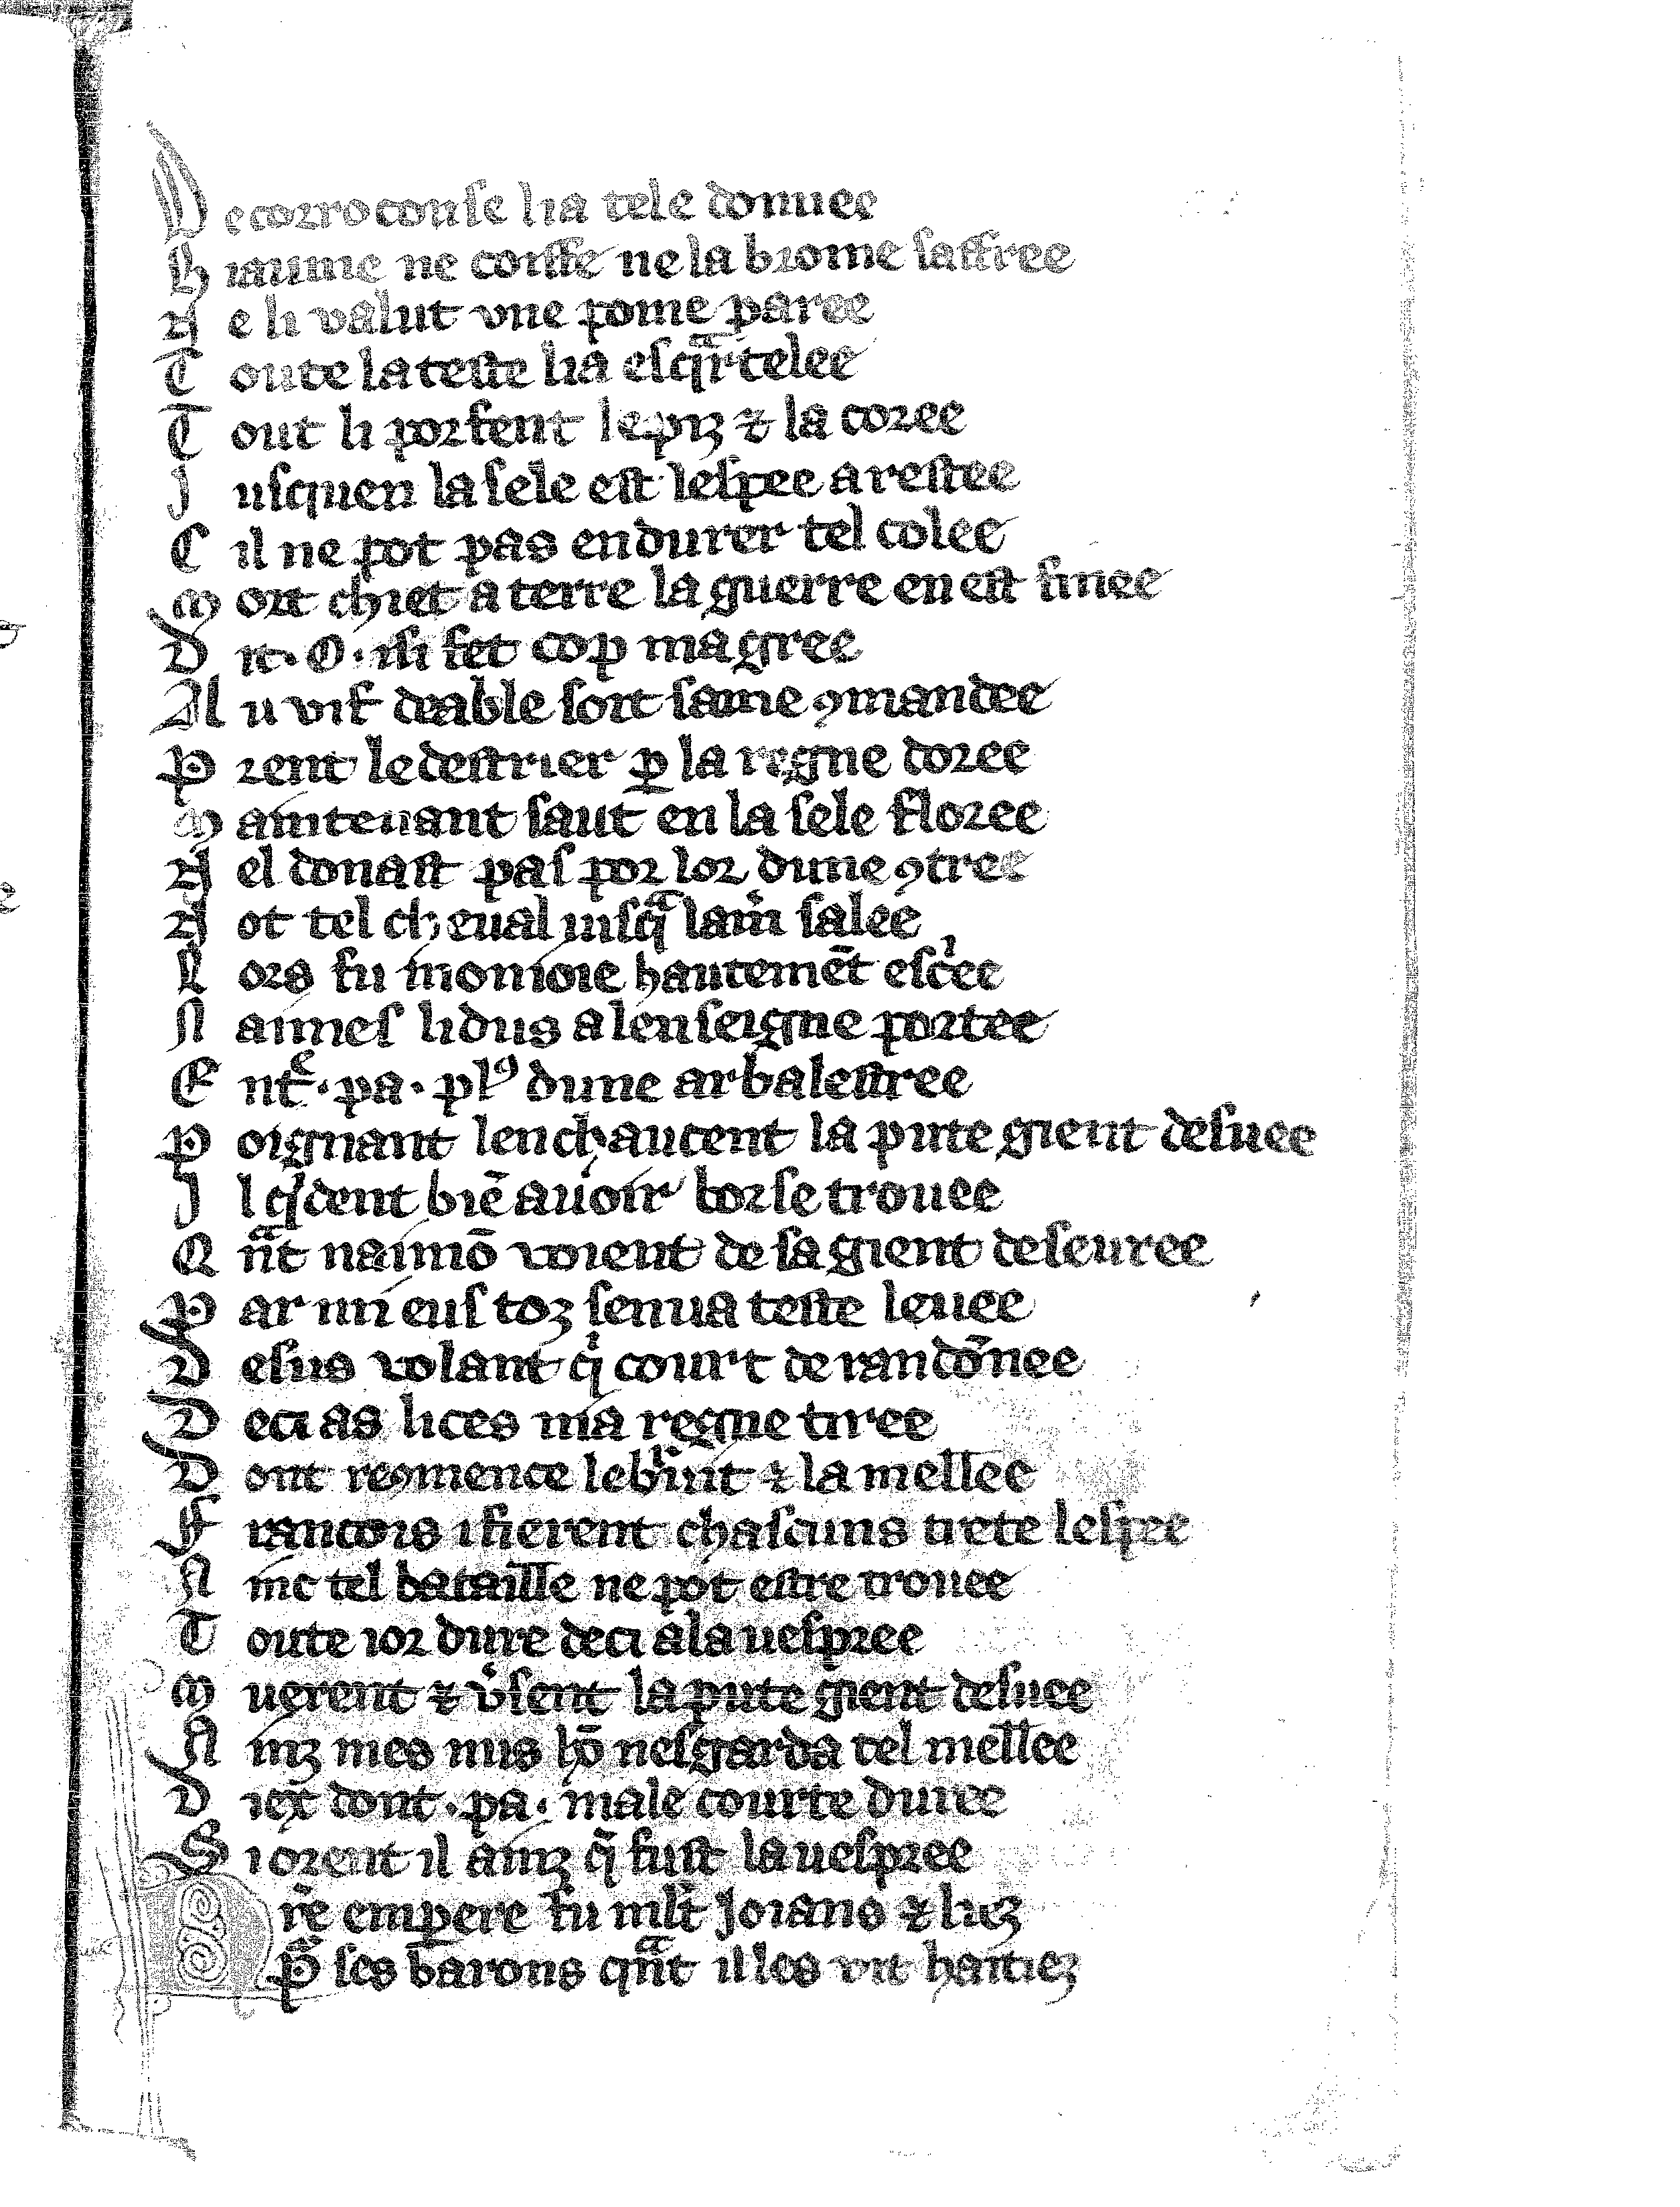 D ecorrocouse li a tele donnee
H iaume ne coiffe ne la broine saffree
N e li valut vne pome paree
T oute la teste li a esqͣrtelee
T out li porfent le piz ⁊ la coree
J usquen la sele est lespee arestee
C il ne pot pas endurer tel colee
M ort chiet a terre la guerre en est finee
D it .O. isi fet cop magree
A u vif deable soit same ꝯmandee
P rent le destrier ꝑ la regne doree
M aintenant saut en la sele floree
N el donast pas por lor dune ꝯtree
N ot tel cheual iusqͣ lam̾ salee
L ors fu monioie hautemēt escͥee
N aimes li dus a lenseigne portee
E ntͤ .pa. plꝰ dune arbalestree
P oignant lenchaucent la pute gient desuee
J l qͥdent biē auoir borse trouee
Q nͣt naimō voient de sa gient deseuree
P ar mi eus toz senua teste leuee
D esus volant qͥ court de randōnee
D eci as lices nia regne tiree
D ont reꝯmence le bͬuit ⁊ la mellee
F rancois i fierent chascuns trete lespee
A inc tel bataille ne pot estre trouee
T oute ior dure deci a la uespree
M uerent ⁊ v̾sent la pute gient desuee
A inz mes nus hō nesgarda tel mellee
D iex dont .pa. male courte duree
S i orent il ainz q̄ fust la uespree
N r̄e emꝑere fu ml̄t Joians ⁊ liez
P̾ ses barons qͣnt il les vit haitiez